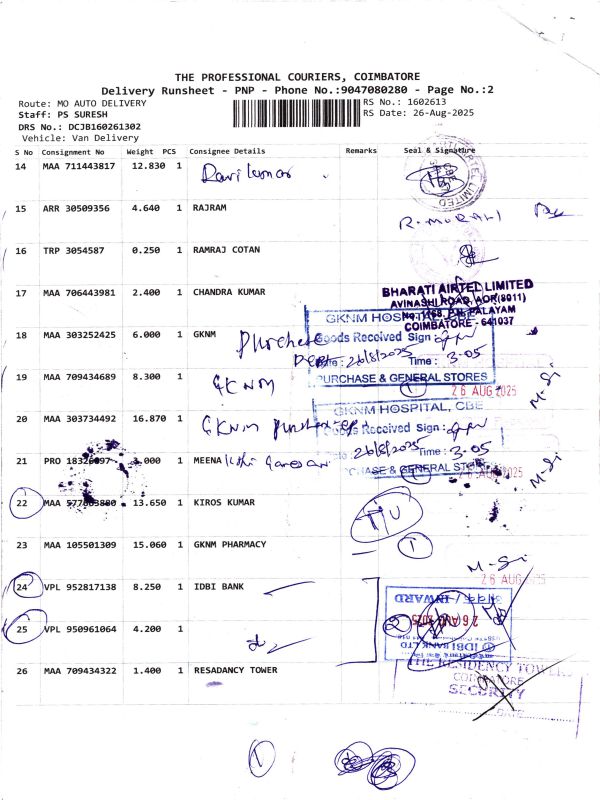 THE PROFESSIONAL COURIERS, COIMBATORE
Delivery Runsheet - PNP - Phone No.:9047080280 - Page No.:2
Route: MO AUTO DELIVERY
RS No.: 1602613
Staff: PS SURESH
RS Date: 26-Aug-2025
DRS No.: DCJB160261302
Vehicle: Van Delivery
S No Consignment No Weight PCS Consignee Details Remarks Seal & Signature
14 MAA 711443817 12.830 1
15 ARR 30509356 4.640 1 RAJRAM R. MURALI
16 TRP 3054587 0.250 1 RAMRAJ COTAN
17 MAA 706443981 2.400 1 CHANDRA KUMAR
BHARATI AIRTEL LIMITED
AVINASHI ROAD, AOR(8011)
PALAYAM
COIMBATORE - 641037
18 MAA 303252425 6.000 1 GKNM
GKNM HOSPITAL, CBE
Goods Received Sign :
Date : 26/8/2025 Time : 3-05
PURCHASE & GENERAL STORES
26 AUG 2025
19 MAA 709434689 8.300 1 GKNM
20 MAA 303734492 16.870 1 GKNM
GKNM HOSPITAL, CBE
Goods Received Sign :
26/8/2025 Time : 3-05
PURCHASE & GENERAL STORES
21 PRO 1 MEENA
22 MAA 13.650 1 KIROS KUMAR
23 MAA 105501309 15.060 1 GKNM PHARMACY 1
26 AUG 2025
24 VPL 952817138 8.250 1 IDBI BANK
INWARD
26 AUG 2025
IDBI BANK LTD
25 VPL 950961064 4.200 1
26 MAA 709434322 1.400 1 RESADANCY TOWER
THE RESIDENCY TOWERS
COIMBATORE
SECURITY
1